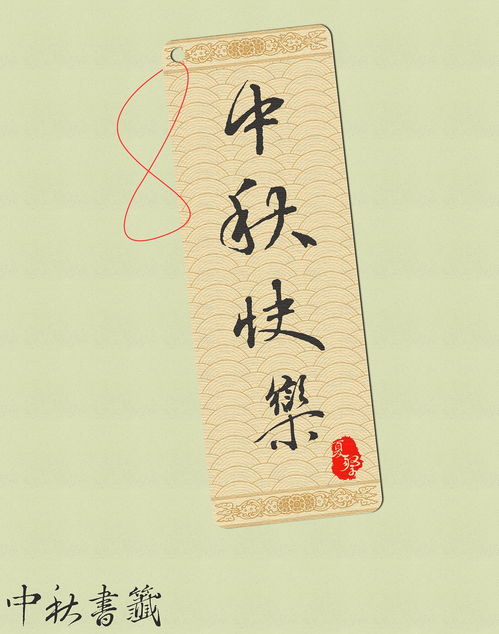 中秋快樂
中秋書籤